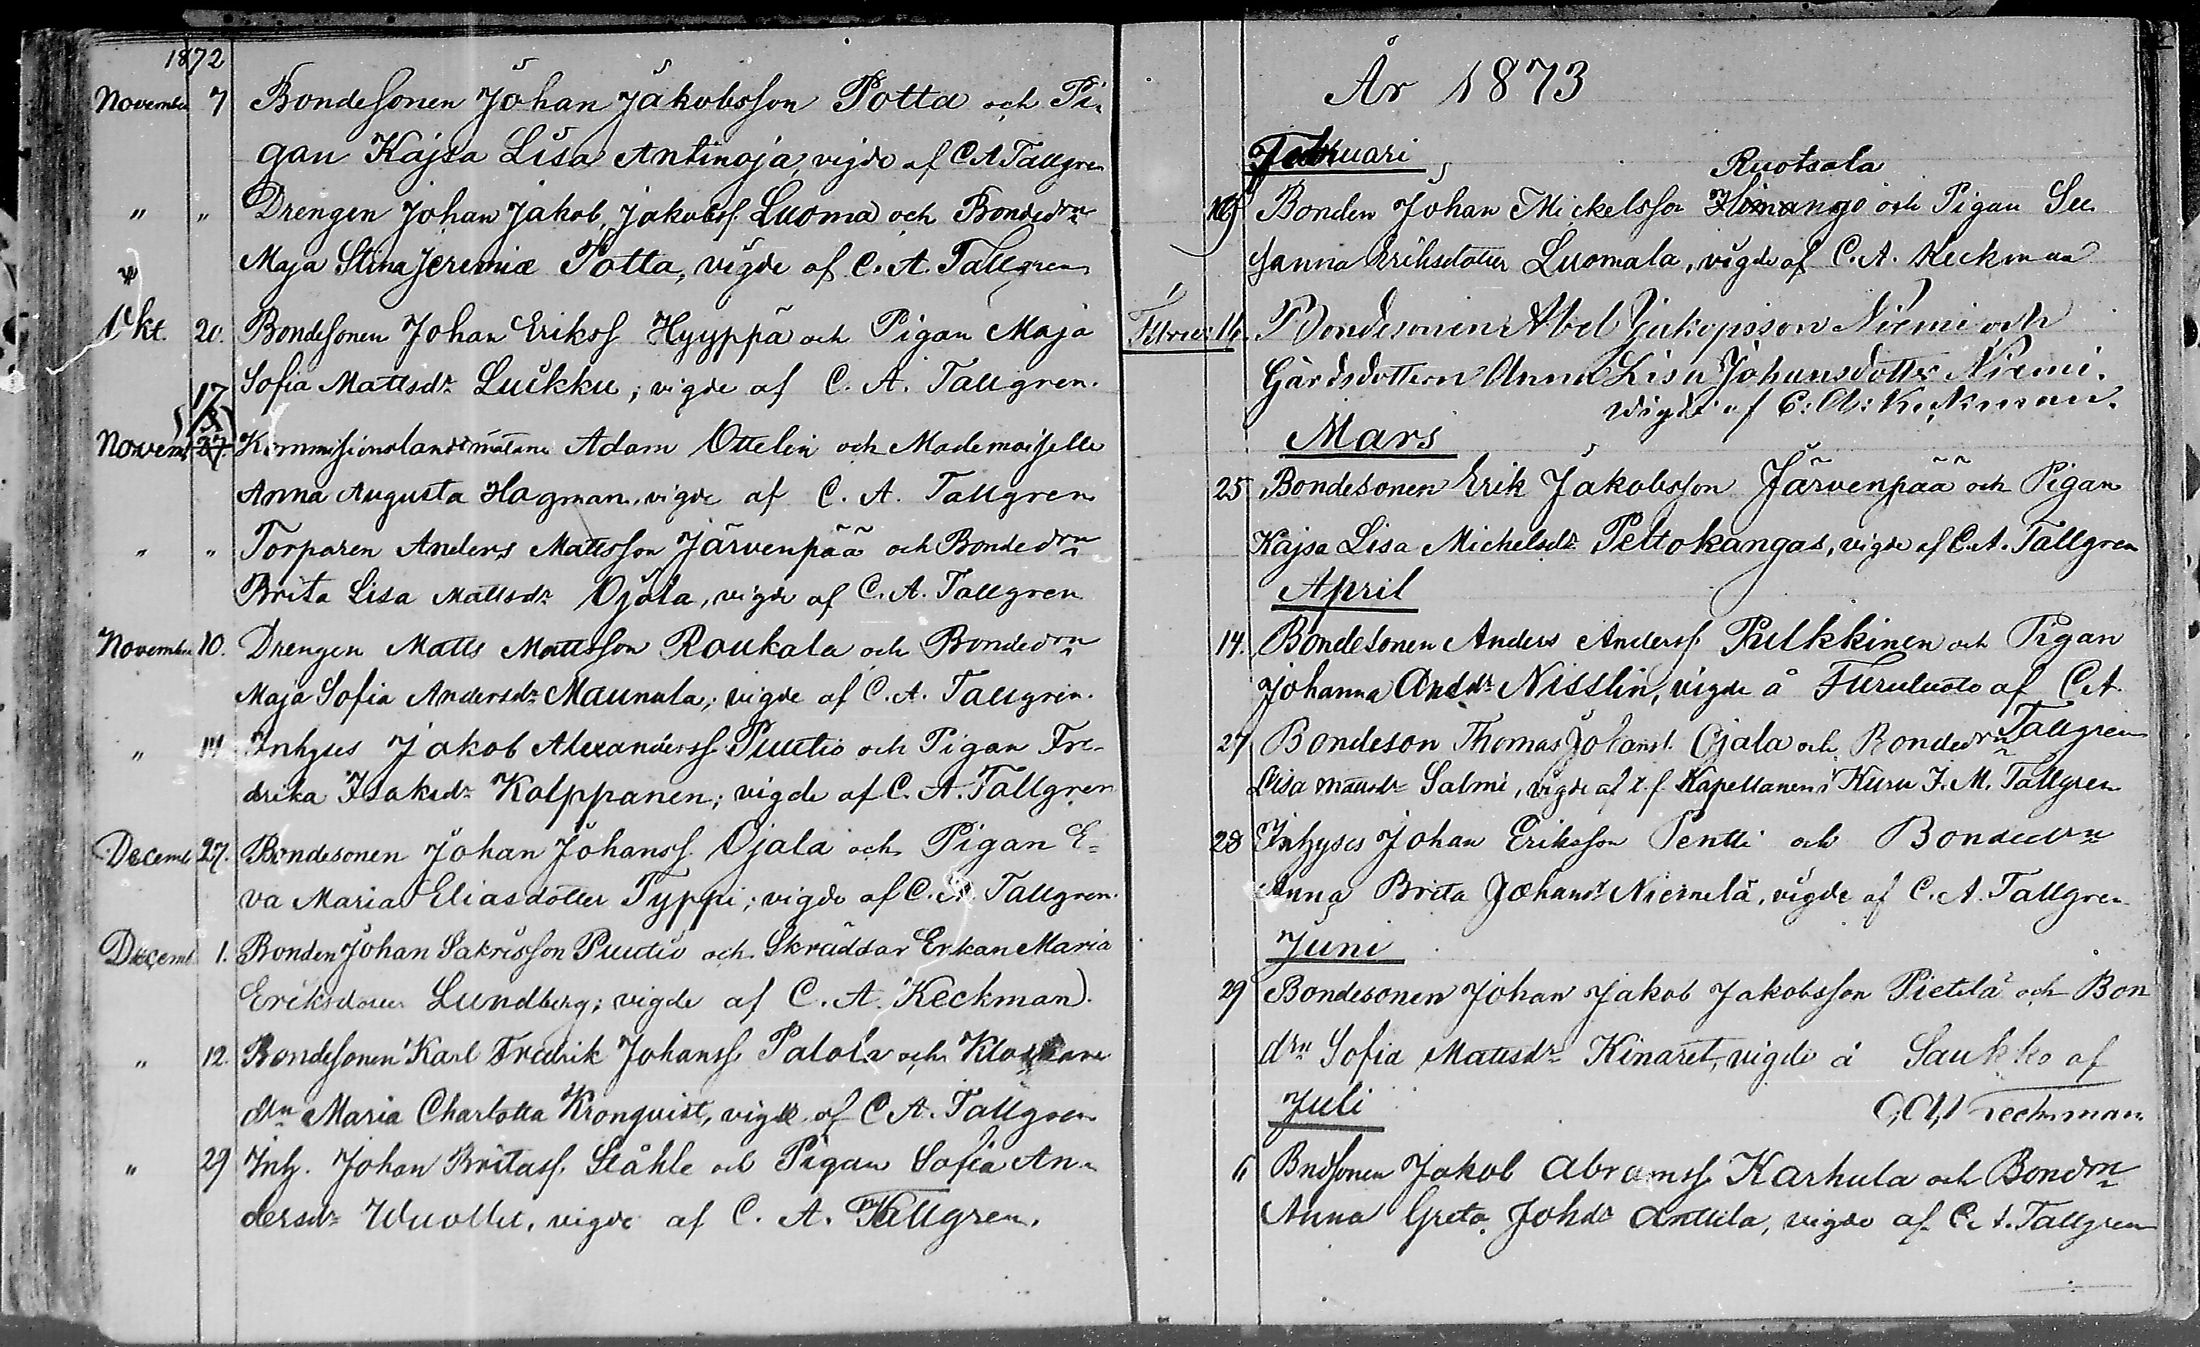 1872
November 7 Bondesonen Johan Jakobsson Potta och Pi-
gan Kajsa Lisa Antinoja, vigde af C A Tallgren
" " Drengen Johan Jakob Jakobss. Luoma och Bondedrn
Maja Stina Jeremiæ Potta, vigde af C. A. Tallgren
Okt. 20. Bondesonen Johan Erikss Hyyppä och Pigan Maja
Sofia Mattsdr Luikku; vigde af C. A. Tallgren.
17
Novemb 27 Kommissionslandtmätaren Adam Ottelin och Mademoiselle
Anna Augusta Hagman, vigde af C. A. Tallgren
" " Torparen Anders Mattsson Järvenpää och Bondedrn
Brita Lisa Mattsdr Ojala, vigde af C. A. Tallgren
November 10. Drengen Matts Mattsson Raukala och Bondedrn
Maja Sofia Andersdr Maunula; vigde af C. A. Tallgren.
" 14 Inhyses Jakob Alexanderss. Puutio och Pigan Fre-
drika Isaksdr Kolppanen; vigde af C. A. Tallgren
Decemb 27. Bondesonen Johan Johanss. Ojala och Pigan E-
va Maria Eliasdotter Typpi; vigde af C. A. Tallgren.
Decemb 1. Bonden Johan Sakrisson Puutio och Skräddar Enkan Maria
Eriksdotter Lundberg; vigde af C. A. Keckman.
" 12. Bondesonen Karl Fredrik Johanss. Palola och Klockare
drn Maria Charlotta Kronqvist, vigde af C A. Tallgren
" 29 Inh. Johan Britass. Ståhle och Pigan Sofia An-
dersdr Wuollet, vigde af C. A. Tallgren.
År 1873
Februari
Ruotsala
Bonden Johan Mickelsson Himango och Pigan Su-
sanna Eriksdotter Luomala, vigde af C. A. Keckman
Februari 16. Bondesonen Abel Jakopsson Niemi och
Gårdsdottern Anna Lisa Johansdotter Niemi.
Vigde af C: A: Keckman.
Mars
25 Bondesonen Erik Jakobsson Järvenpää och Pigan
Kajsa Lisa Michelsdr Peltokangas, vigde af C. A. Tallgren
April
14. Bondesonen Anders Anderss. Pulkkinen och Pigan
Johanna Anddr Nisslin, vigde å Furuluoto af C. A.
Tallgren
27 Bondeson Thomas Johanss. Ojala och Bondedrn
Lisa Mattsdr Salmi, vigde af t. f. Kapellanen i Kuru J. M. Tallgren
28 Inhyses Johan Eriksson Pentti och Bondedrn
Anna Brita Johansdr Niemelä, vigde af C. A. Tallgren
Juni
29 Bondesonen Johan Jakob Jakobsson Pietilä och Bon
drn Sofia Mattsdr Kinaret, vigde å Saukko af
C. A. Keckman
Juli
6 Bndsonen Jakob Abramss. Karhula och Bondrn
Anna Greta Johdr Anttila, vigde af C. A. Tallgren